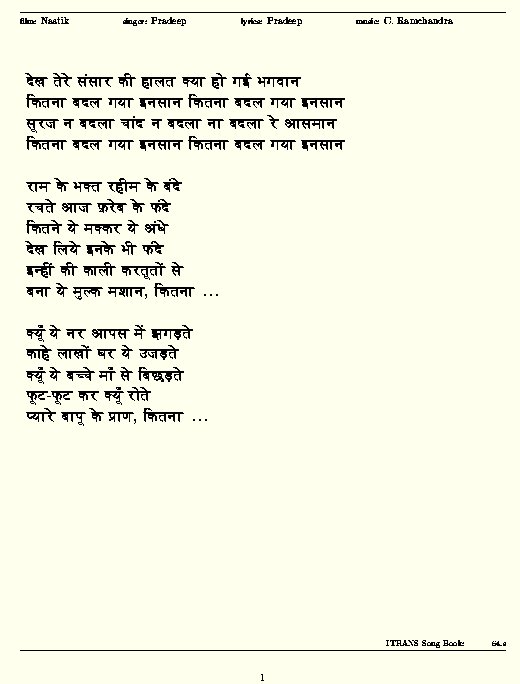 film: Nastik singer: Pradeep lyrics: Pradeep music: C. Ramchandra
देख तेरे संसार की हालत क्या हो गई भगवान
कितना बदल गया इनसान कितना बदल गया इनसान
सूरज न बदला चांद न बदला ना बदला रे आसमान
कितना बदल गया इनसान कितना बदल गया इनसान
राम के भक्त रहीम के बंदे
रचते आज फ़रेब के फंदे
कितने ये मक्कर ये अंधे
देख लिये इनके भी फंदे
इन्हीं की काली करतूतों से
बना ये मुल्क मशान, कितना ...
क्यूँ ये नर आपस में झगड़ते
काहे लाखों घर ये उजड़ते
क्यूँ ये बच्चे माँ से बिछड़ते
फूट-फूट कर क्यूँ रोते
प्यारे बापू के प्राण, कितना ...
ITRANS Song Book
1